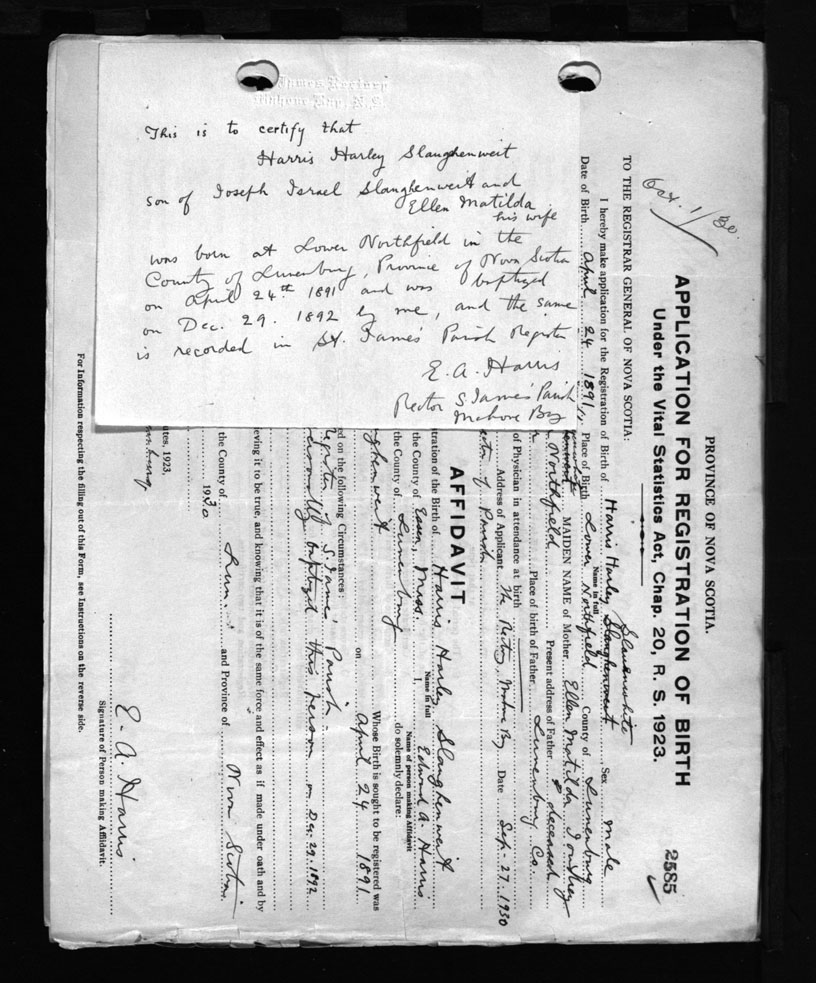 James Rectory
Mahone Bay, N.S.
This is to certify that
Harris Harley Slaughenweit
son of Joseph Israel Slaughenweit and
Ellen Matilda
his wife
was born at Lower Northfield in the
County of Lunenburg, Province of Nova Scotia
on April 24th 1891 and was baptized
on Dec. 29. 1892 by me, and the same
is recorded in St. James' Parish Register
E. A. Harris
Rector S James' Parish
Mahone Bay
Oct. 1/30.
PROVINCE OF NOVA SCOTIA.
APPLICATION FOR REGISTRATION OF BIRTH
2585
Under the Vital Statistics Act, Chap. 20, R. S. 1923.
TO THE REGISTRAR GENERAL OF NOVA SCOTIA:
Slauenwhite
I hereby make application for the Registration of Birth of Harris Harley Slaughenweit Sex Male
Name in full
Date of Birth April 24 1891 Place of Birth Lower Northfield County of Lunenburg
MAIDEN NAME of Mother Ellen Matilda
Northfield Present address of Father deceased
Place of birth of Father Lunenburg Co.
of Physician in attendance at birth
Address of Applicant The Rectory, Mahone Bay Date Sep. 27. 1930
of Parish
AFFIDAVIT
tration of the Birth of Harris Harley Slaughenweit
Name in full
the County of Essex, Mass. I, Edward A. Harris
Name of person making Affidavit
the County of Lunenburg do solemnly declare:
ghenweit Whose Birth is sought to be registered was
on April 24 1891
ed on the following Circumstances:
of S. James' Parish
baptized this person on Dec. 29. 1892
eving it to be true, and knowing that it is of the same force and effect as if made under oath and by
the County of Lun. and Province of Nova Scotia.
1930
utes, 1923.
E. A. Harris
Signature of Person making Affidavit.
For Information respecting the filling out of this Form, see Instructions on the reverse side.